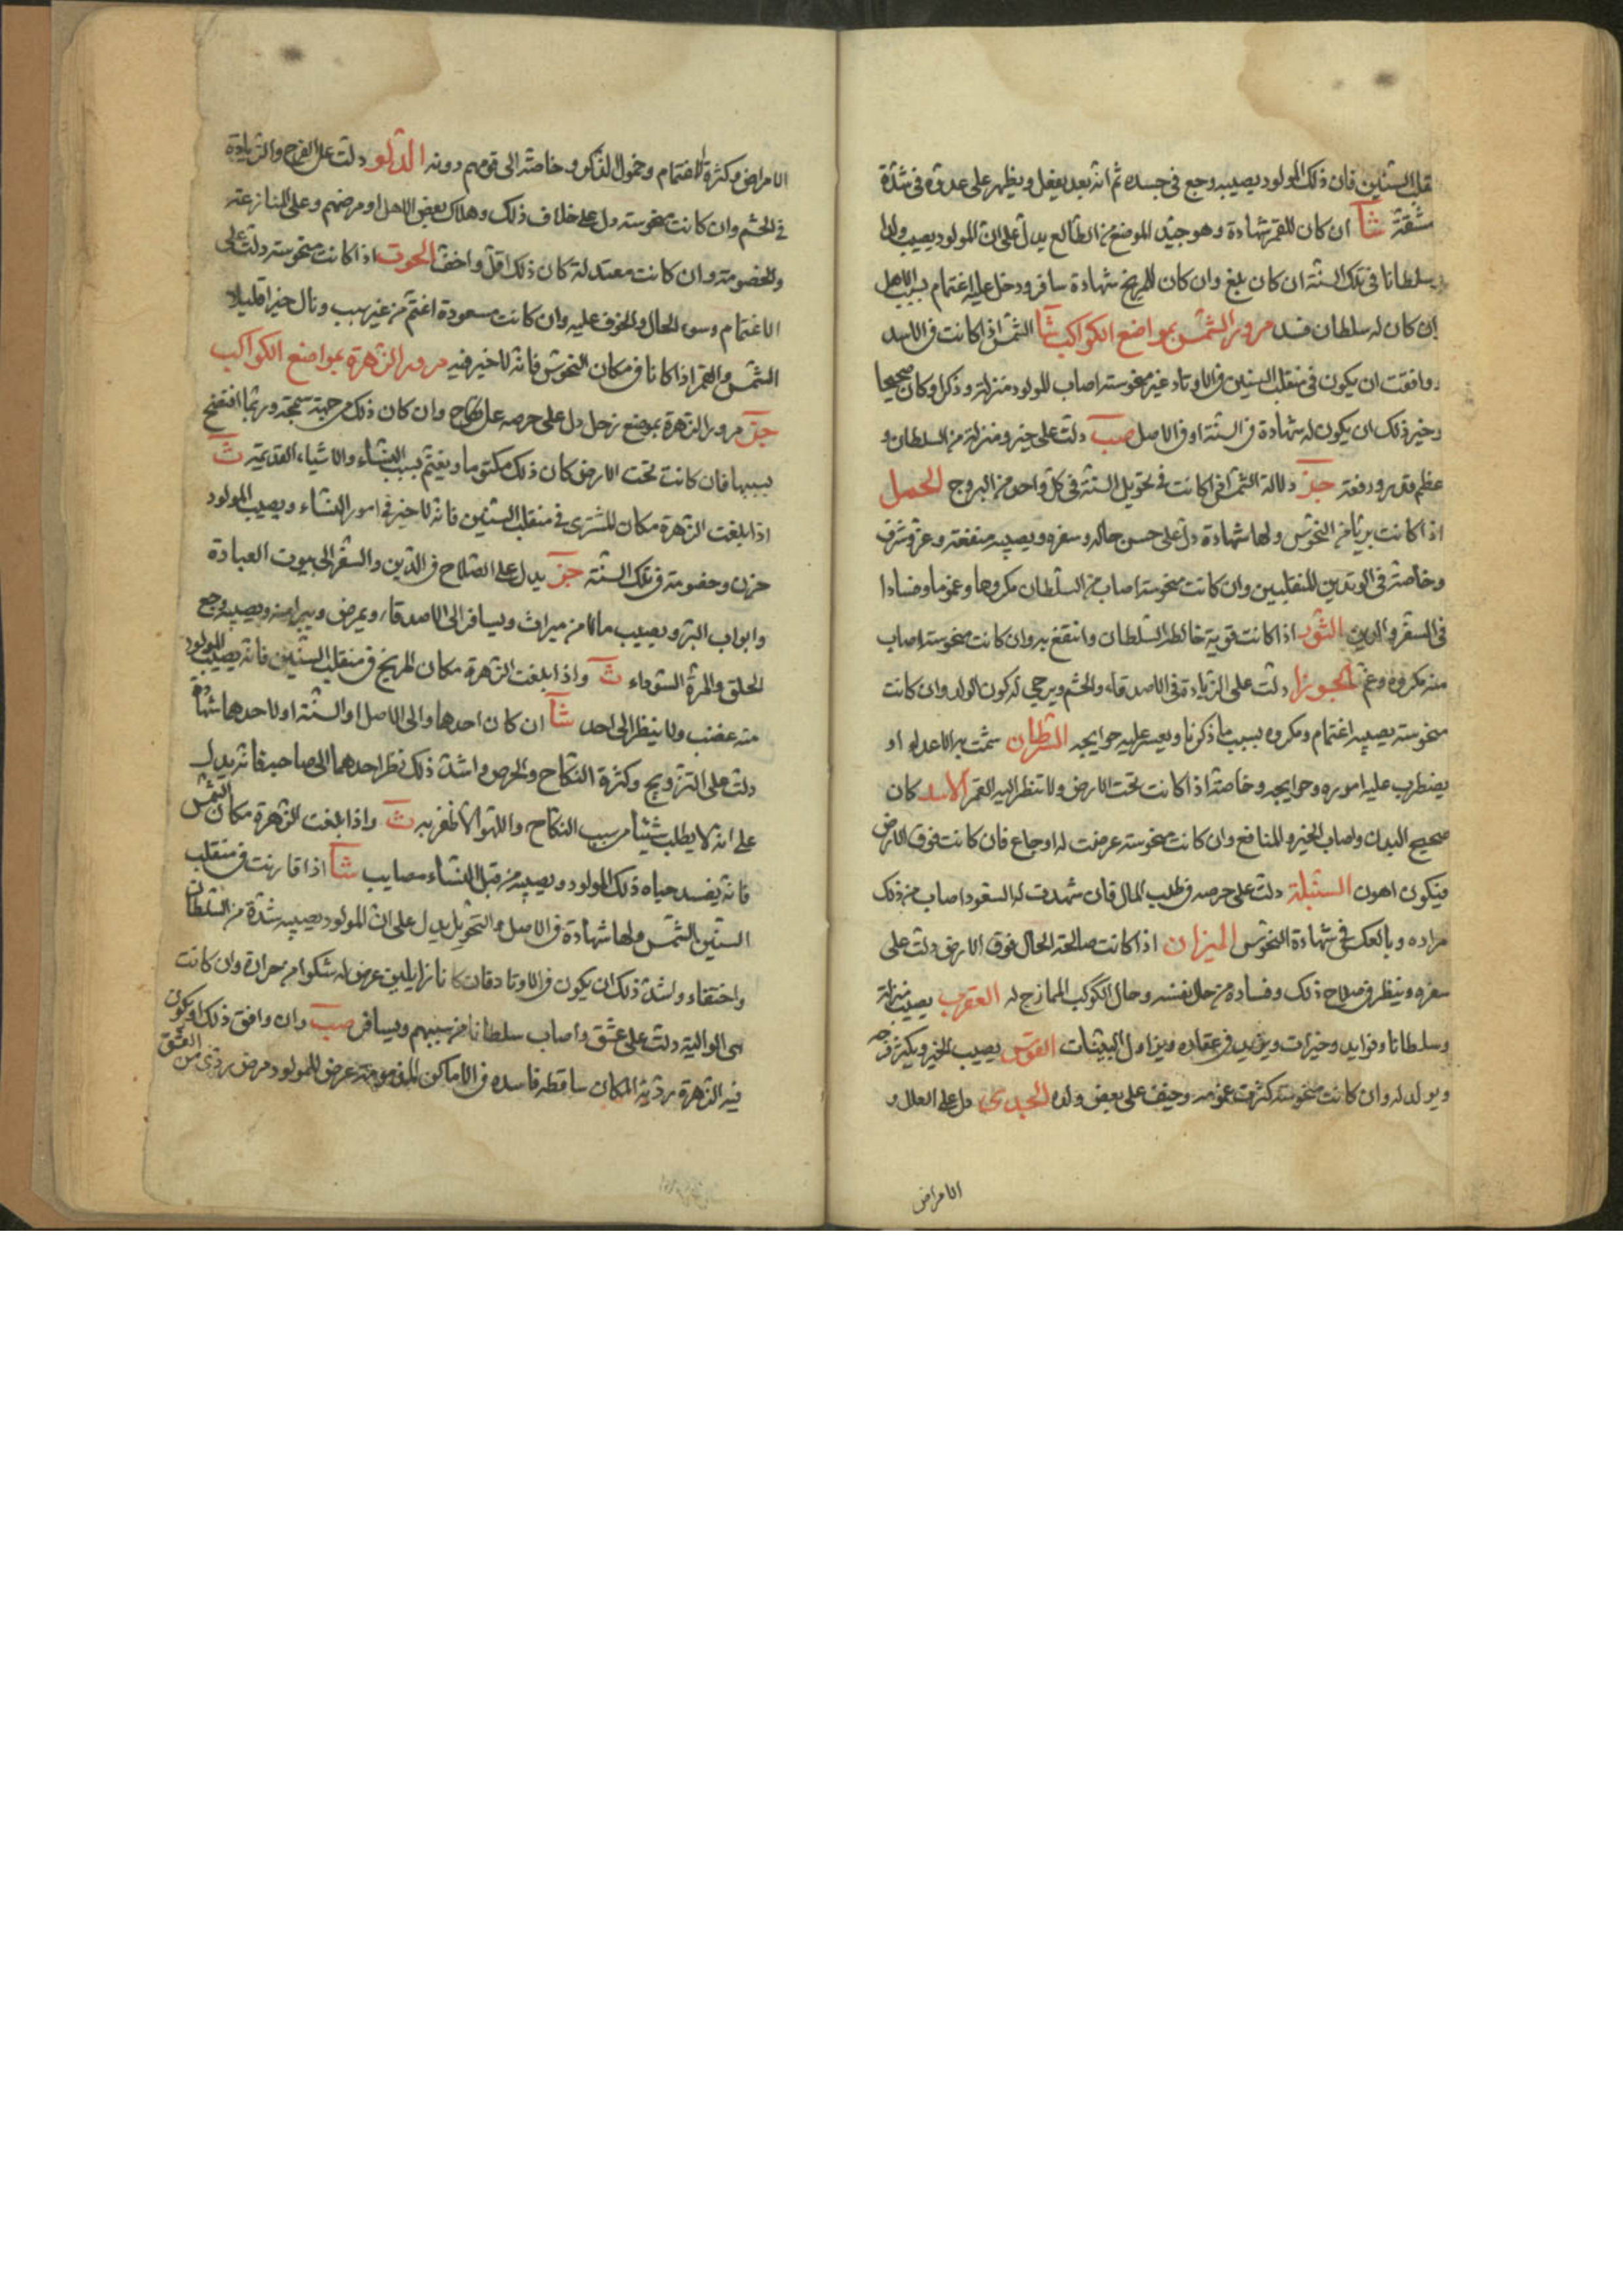 قلب السنين فان ذلك المولود يصيبه وجع في جسده ثم انه بعد يفعل ويظهر على عدوه في شدّة
مشقة شآ ان كان للقمر شهادة وهو جيّد الموضع من الطالع يدلّ على انّ المولود يصيب ولدا
وسلطانا في تلك السنة ان كان بلغ وان كان للمريخ شهادة سافر ودخل عليه اغتمام بسبب الاهل
ان كان له سلطان فسد مرور الشمس بمواضع الكواكب شآ الشمس اذا كانت في الاسد
ووافقت ان يكون في منقلب السنين في الاوتاد غير منحوسته اصاب للمولود منزلة وذكرا وكان صحيحا
وخير ذلك ان يكون له شهادة في السنة او في الاصل صب دلت على خير ومنزلة من السلطان و
عظم قدر ورفعة دلالة الشمس اذا كانت في تحويل السنة في كل واحد من البروج الحمل
اذا كانت بريّا من النحوس ولها شهادة دلّ على حسن حاله وسفره ويصيبه منفعة وعز وشرف
وخاصّة في الوتدين المنقلبين وان كانت منحوسته اصاب من السلطان مكروها وغموما وفسادا
في السفر والدين الثور اذا كانت قوية خالط السلطان وانتفع به وان كانت منحوسته اصاب
منه مكروه وغم الجوزا دلت على الزيادة في الاصدقاء والحشم ويرجى له كون الولد وان كانت
منحوسته يصيبه اغتمام ومكروه بسبب ما ذكرنا ويعسر عليه حوايجه السرطان شمت به الاعداء او
يضطرب عليه اموره وحوايجه وخاصّة اذا كانت تحت الارض ولا تنظر اليه القمر الاسد كان
صحيح البدن واصاب الخير والمنافع وان كانت منحوسته عرضت له اوجاع فان كانت فوق الارض
فيكون اهون السنبلة دلت على حرصه في طلب المال فان شهدت له السعود اصاب من ذلك
مراده وبالعكس في شهادة النحوس الميزان اذا كانت صالحة الحال فوق الارض دلت على
سفره وينظر في صلاح ذلك وفساده من حال نفسه وحال الكوكب الممازج له العقرب يصيب منزلة
وسلطانا وفوايد وخيرات ويزيد في عقاره ويزاول البينات القوس يصيب الخير ويكثر فرحه
ويولد له وان كانت منحوسته كثرت غمومه وخيف على بعض ولده الجدي دل على العلل و
الامراض
الامراض وكثرة الاغتمام وخمول الذكر وخاصّة الى قومهم دونه الدلو دلت على الفرح والزيادة
في الحشم وان كانت منحوسته دل على خلاف ذلك وهلاك بعض الاهل او مرضهم وعلى المنازعة
والخصومة وان كانت معتدلة كان ذلك اقل واخف الحوت اذا كانت منحوسته دلت على
الاغتمام وسوء الحال والخوف عليه وان كانت مسعودة اغتم من غير سبب ونال خيرا قليلا
الشمس والقمر اذا كانا في مكان النحوس فانه لا خير فيه مرور الزهرة بمواضع الكواكب
مرور الزهرة بموضع زحل دل على حرصه على نكاح وان كان ذلك من جهة سمجة وربما افتضح
بسببها فان كانت تحت الارض كان ذلك مكتوما ويغتم بسبب النساء والاشياء القديمة
اذا بلغت الزهرة مكان المشترى في منقلب السنين فانه لا خير في امور النساء ويصيب المولود
حزن وخصومة في تلك السنة يدل على الصلاح في الدين والسفر الى بيوت العبادة
وابواب البر ويصيب مالا من ميراث ويسافر الى الاصدقاء ويمرض ويبرا منه ويصيبه وجع
الحلق والمرة السوداء واذا بلغت الزهرة مكان المريخ في منقلب السنين فانه يصيب المولود
منه غضب ولا ينظر الى احد شآ ان كان احدهما والى الاصل او السنة او لاحدهما شهادة
دلت على التزويج وكثرة النكاح والحرص واشد ذلك نظر احدهما الى صاحبه فانه يدل
على انه لا يطلب شيئا من سبب النكاح واللهو الا ظفر به واذا بلغت الزهرة مكان الشمس
فانه يفسد حياه ذلك المولود ويصيبه من قبل النساء مصايب شآ اذا قارنت في منقلب
السنين الشمس ولها شهادة في الاصل والتحويل يدل على ان المولود يصيبه شدة من السلطان
واختفاء واشد ذلك ان يكون في الاوتاد فان كانا زايلين عرض له شكوا من حرارة وان كانت
هى الوالية دلت على عشق واصاب سلطانا من سببهم ويسافر صب وان وافق ذلك او يكون
فيه الزهرة ردية المكان ساقطه فاسده في الاماكن المذمومة عرض للمولود مرض ردى من العشق